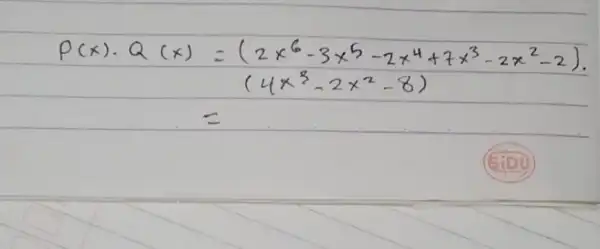 P(x). Q (x) = (2x⁶-3x⁵-2x⁴+7x³-2x²-2).
(4x³-2x²-8)
=
SiDU